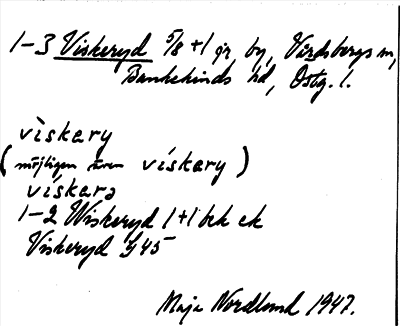 1-3 Viskeryd 5/8 +1 gr, by, Vårdsbergs sn,
Bankekinds hd, Östg. l.
viskary
(möjligen även viskary)
viskarə
1-2 Wiskeryd 1+1 bek ek
Viskeryd G 45
Maja Nordlund 1947.